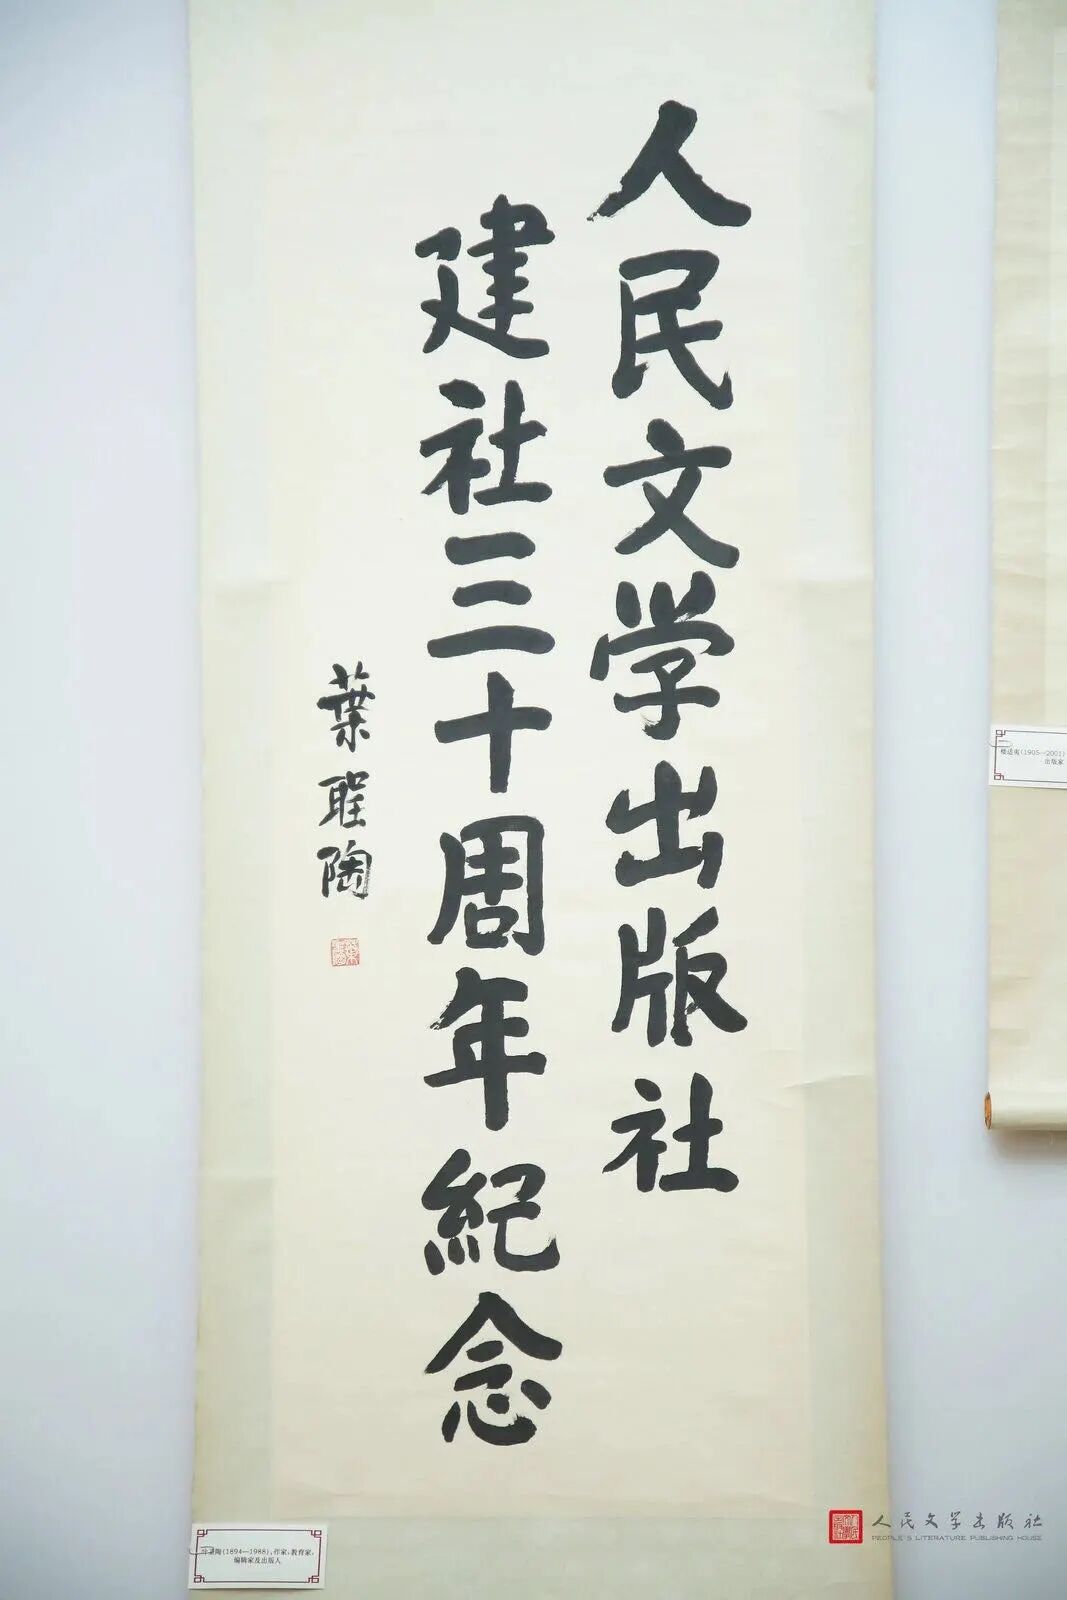 人民文学出版社
建社三十周年紀念
葉聖陶
叶圣陶(1894—1988),作家、教育家、
编辑家及出版人
楼适夷(1905—2001)
出版家
人民文学出版社
PEOPLE'S LITERATURE PUBLISHING HOUSE